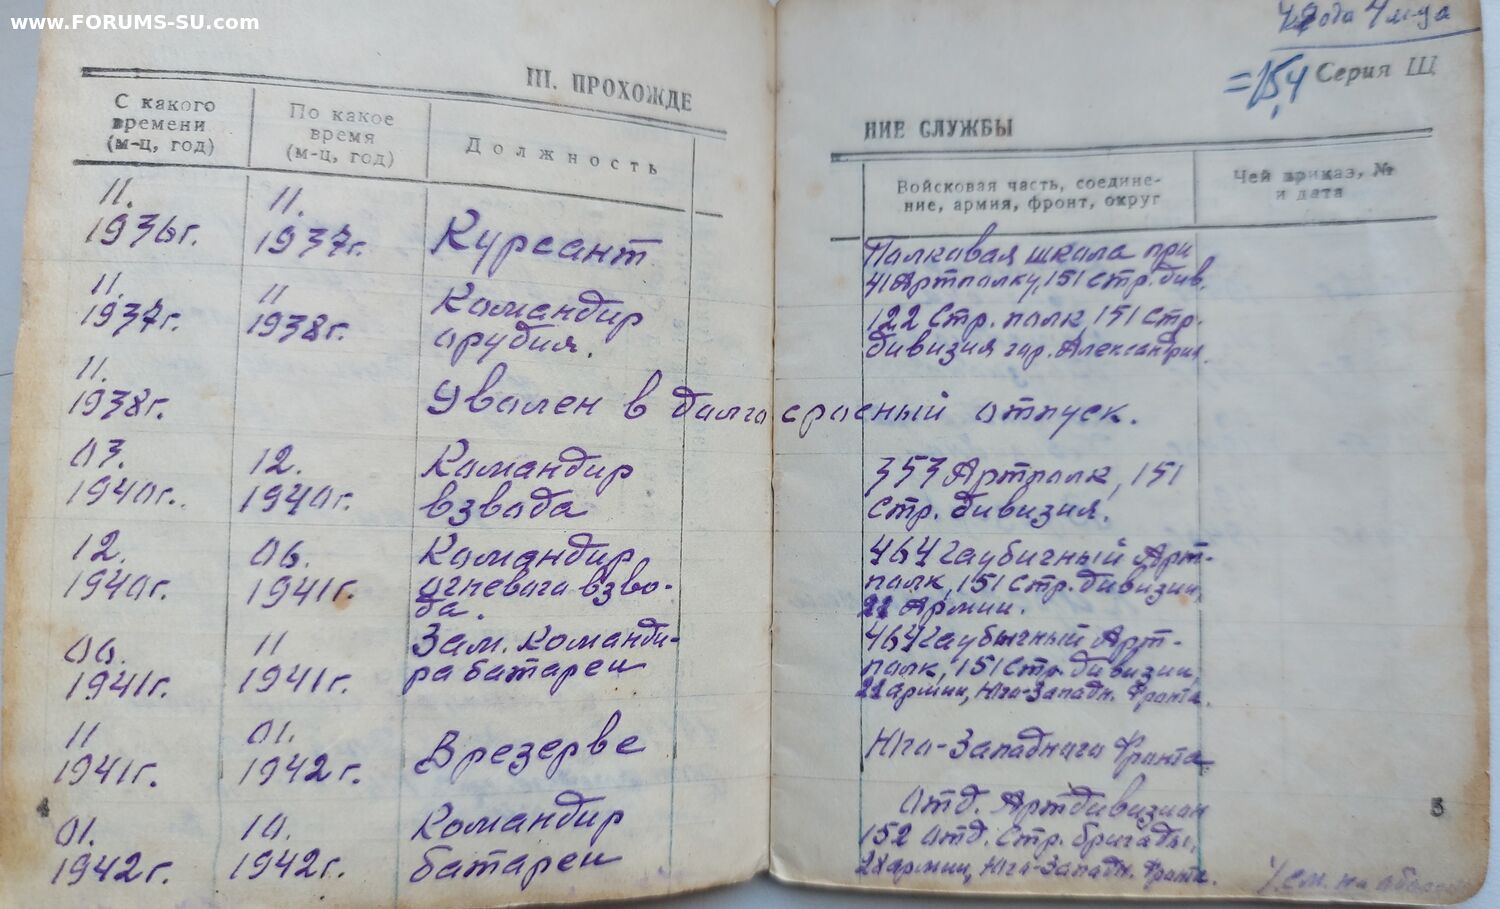 www.FORUMS-SU.com
года 4 м-ца
=15,4
Серия Щ
III. ПРОХОЖДЕ
НИЕ СЛУЖБЫ
С какого
времени
(м-ц, год)
По какое
время
(м-ц, год)
Должность
Войсковая часть, соедине-
ние, армия, фронт, округ
Чей приказ, №
и дата
11.
1936г.
11.
1937г.
Курсант
Палкавая школа при
41 Артполку, 151 Стр. див.
11.
1937г.
11
1938г.
Командир
орудия.
122 Стр. полк, 151 Стр.
дивизия гор. Александрия.
11.
1938г.
Уволен в долгосрочный отпуск.
03.
1940г.
12.
1940г.
Командир
взвода
353 Артполк, 151
Стр. дивизия.
12.
1940г.
06.
1941г.
Командир
огневого взво-
да.
464 Гаубичный Арт-
полк, 151 Стр. дивизии,
Армии.
06.
1941г.
11
1941г.
Зам. Команди-
ра батареи
464 Гаубичный Арт-
полк, 151 Стр. дивизии,
армии, Юго-Западн. Фронта.
11
1941г.
01.
1942г.
В резерве
Юго-Западного Фронта.
01.
1942г.
10.
1942г.
Командир
батареи
Отд. Артдивизион
152 отд. Стр. бригады,
армии, Юго-Западн. Фронта.
4
3
см. на обороте